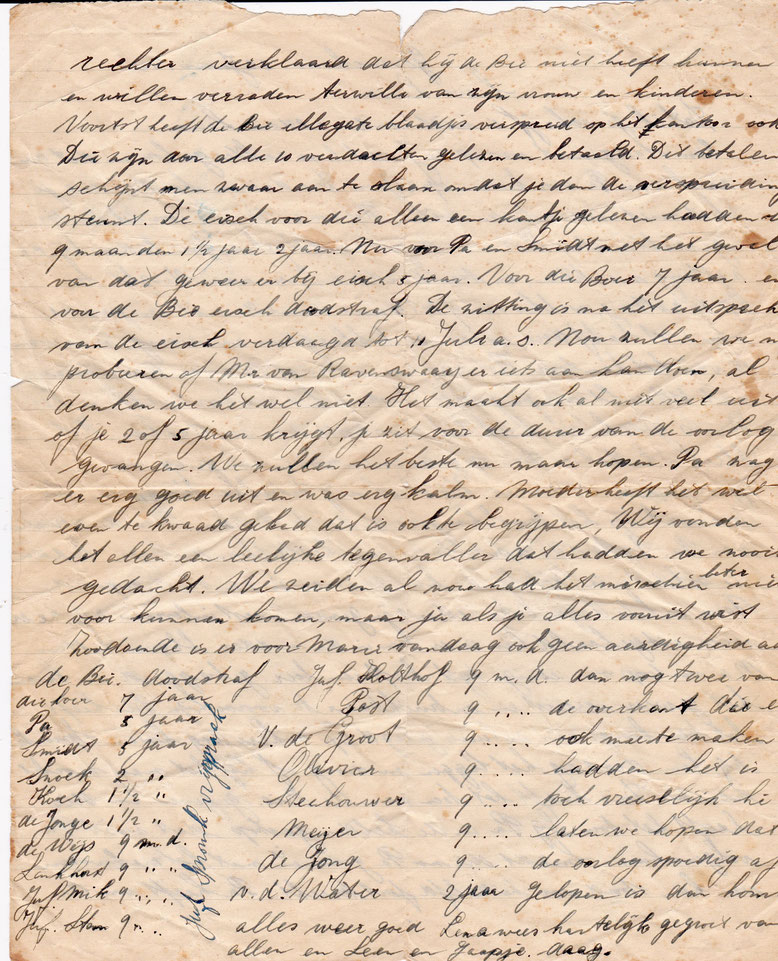 rechter verklaard dat hij de Bie niet heeft kunnen
en willen verraden terwille van zijn vrouw en kinderen.
Voorts heeft de Bie illegale blaadjes verspreid op het kantoor ook
Die zijn door alle 10 verdachten gelezen en betaald. Dit betalen
schijnt men zwaar aan te slaan omdat je dan de verspreiding
steunt. De eisch voor die alleen een krantje gelezen hadden
9 maanden 1½ jaar 2 jaar. Nu voor Pa en Smidt met het geval
van dat geweer er bij eisch 5 jaar. Voor die Boer 7 jaar. en
voor de Bie eisch doodstraf. De zitting is na het uitspreken
van de eisch verdaagd tot Juli a.s. Nou zullen we
probieren of Mr van Ravenswaay er iets aan kan doen, al
denken we het wel niet. Het maakt ook al niet veel uit
of je 2 of 5 jaar krijgt, je zit voor de duur van de oorlog
gevangen. We zullen het beste nu maar hopen. Pa zag
er erg goed uit en was erg kalm. Moeder heeft het wel
even te kwaad gehad dat is ook te begrijpen, Wij vonden
het allen een leelijke tegenvaller dat hadden we nooit
gedacht. We zeiden al nou had het misschien beter
voor kunnen komen, maar ja als je alles vooruit wist
Zoodoende is er voor Marie vandaag ook geen aardigheid
de Bie. doodstraf Juf. Holthof 9 m.d. dan nog twee van
die boer 7 jaar Post 9 .... de overkant die
Pa 5 jaar
Smidt 5 jaar V. de Groot 9 .... ook moeste maken
Snoek 2 " Olivier 9 .... hadden het is
Koch 1½ " Steehouwer 9 .... toch vreeselijk
de Jonge 1½ " Meijer 9 .... laten we hopen dat
de Wijs 9 m.d.
Lankhart 9 " " de Jong 9 .... de oorlog spoedig
Juf. Mik 9 " " v.d. Water 2 jaar gelopen is dan
Juf. Stam 9 .... alles weer goed Lena wees hartelijk gegroet van
allen en Leen en Jaapje. daag.
Juf Spronk vrijspraak